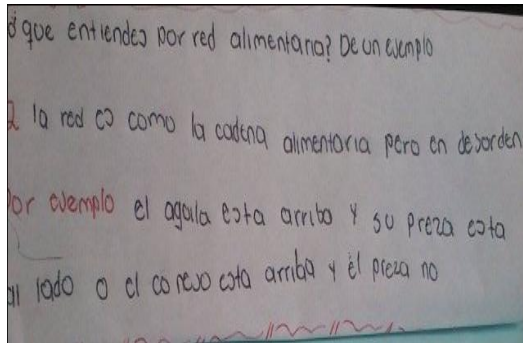 ¿que entiendes por red alimentaria? De un ejemplo
R la red es como la cadena alimentaria pero en desorden
Por ejemplo el agila esta arriba y su preza esta
al lado o el conejo esta arriba y él preza no